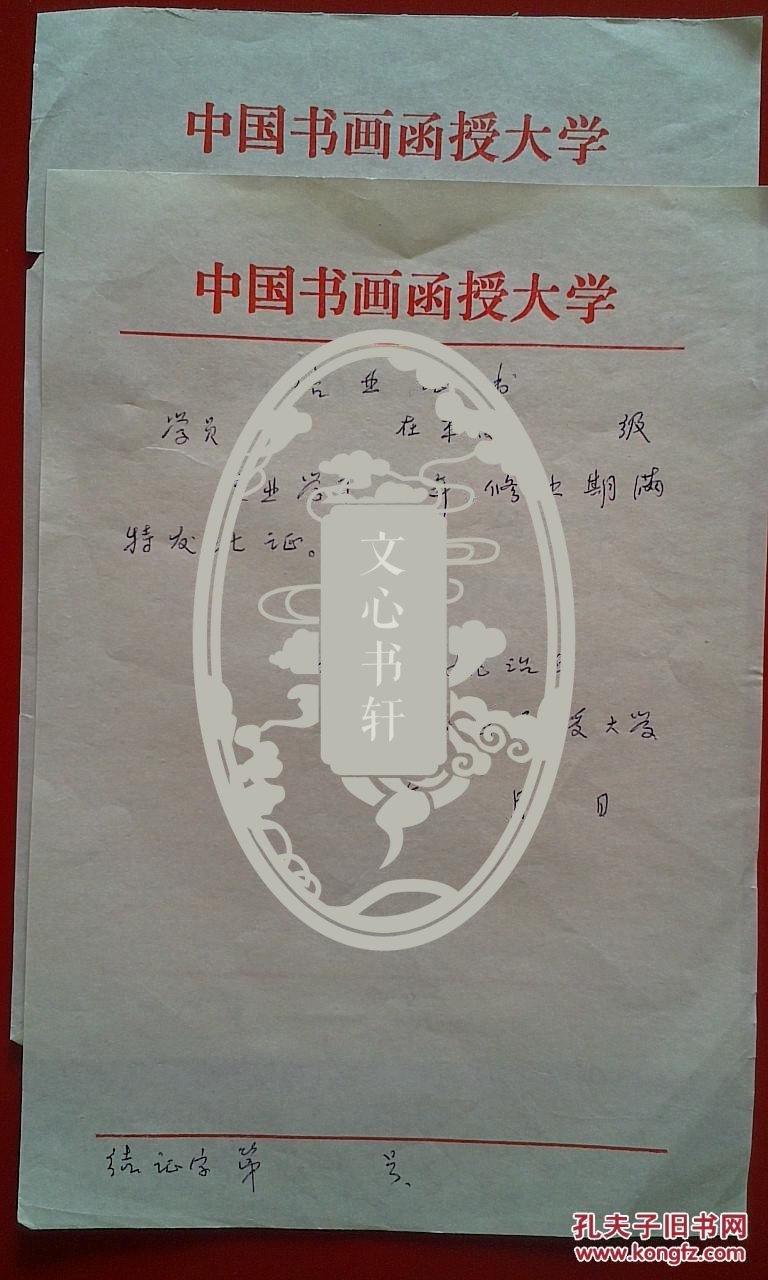 中国书画函授大学
中国书画函授大学
业 书
学员 在 级
业学 年修业期满
特发此证。
文心书轩
授大学
月 日
结证字第 号
孔夫子旧书网
www.kongfz.com